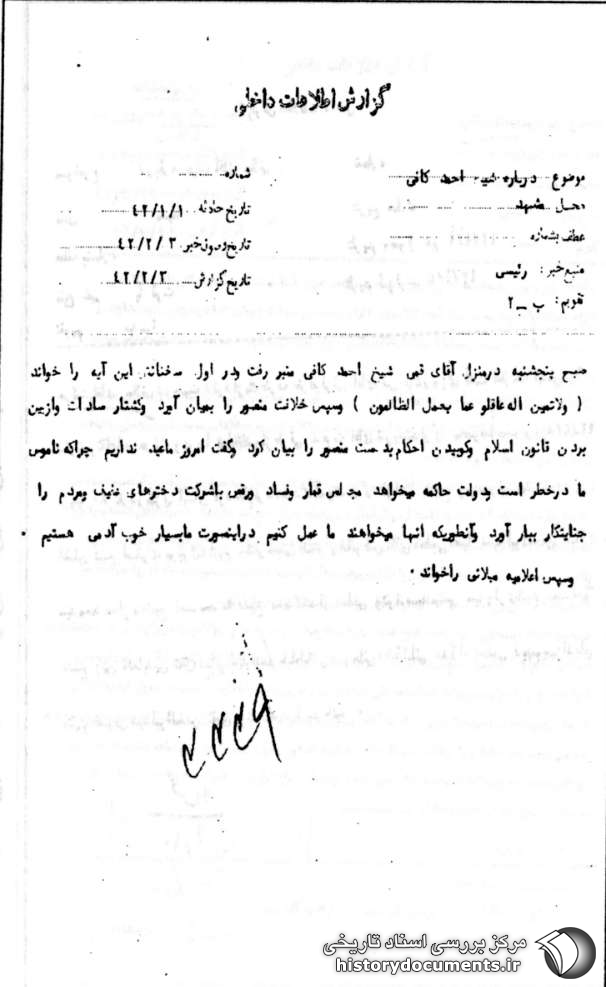 گزارش اطلاعات داخلی
موضوع درباره شیخ احمد کافی شماره
محل مشهد تاریخ حادثه ۴۲/۱/۱
عطف بشماره تاریخ وصول خبر ۴۲/۲/۳
منبع خبر: رئیسی تاریخ گزارش ۴۲/۲/۳
تقویم: ب ــ ۲
صبح پنجشنبه درمنزل آقای قمی شیخ احمد کافی منبر رفت ودر اول سخنانش این آیه را خواند
( ولاتحسبن اله غافلو عما یعمل الظالمون ) وسپس خلافت منصور را بمیان آورد وکشتار سادات وازبین
بردن قانون اسلام وکوبیدن احکام بدست منصور را بیان کرد وگفت امروز ماعید نداریم چراکه ناموس
ما درخطر است ودولت حاکمه میخواهد مجالس قمار وفساد ورقص باشرکت دخترهای عفیف ومردم را
جنایتکار ببار آورد وآنطوریکه آنها میخواهند ما عمل کنیم دراینصورت مابسیار خوب آدمی هستیم .
وسپس اعلامیه میلانی راخواند .
مرکز بررسی اسناد تاریخی
historydocuments.ir